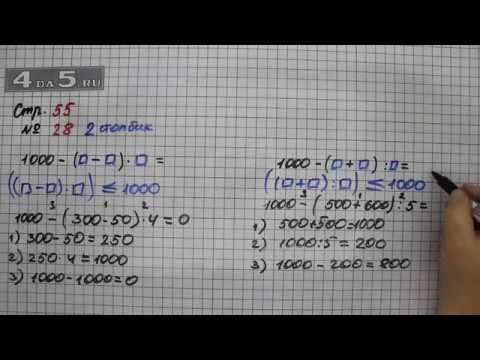 4 DA 5.RU
Стр. 55
№ 28 2 столбик
1000 - (□ - □) · □ =
((□ - □) · □) ≤ 1000
3 1 2
1000 - (300 - 50) · 4 = 0
1) 300 - 50 = 250
2) 250 · 4 = 1000
3) 1000 - 1000 = 0
1000 - (□ + □) : □ =
((□ + □) : □) ≤ 1000
3 1 2
1000 - (500 + 600) : 5 =
1) 500 + 500 = 1000
2) 1000 : 5 = 200
3) 1000 - 200 = 800